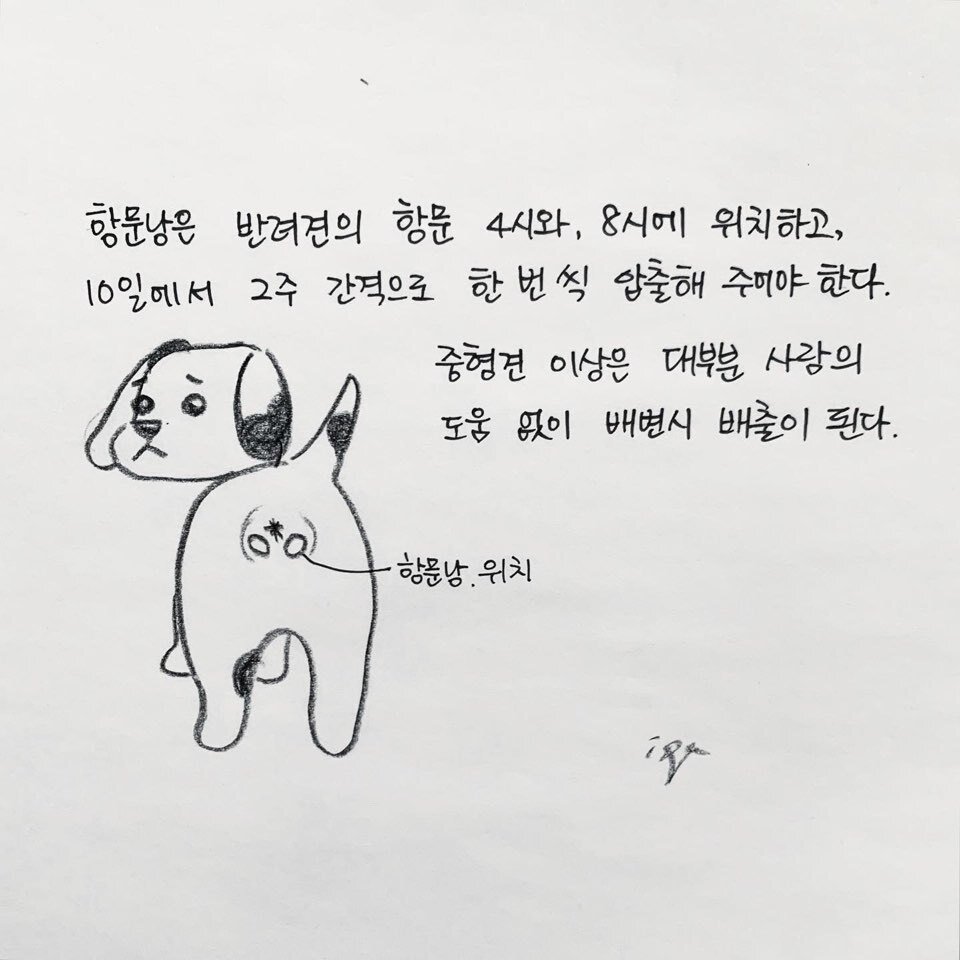 항문낭은 반려견의 항문 4시와, 8시에 위치하고,
10일에서 2주 간격으로 한 번 씩 압출해 주어야 한다.
중형견 이상은 대부분 사람의
도움 없이 배변시 배출이 된다.
항문낭. 위치